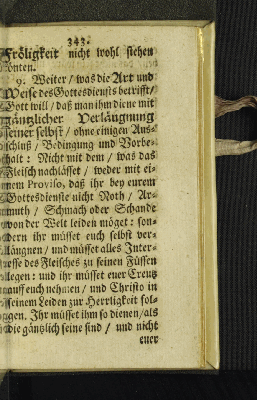 343.
Fröligkeit nicht wohl stehen
könten.
9. Weiter / was die Art und
Weise des Gottesdiensts betrifft /
Gott will / daß man ihm diene mit
gäntzlicher Verläugnung
seiner selbst / ohne einigen Aus-
schluß / Bedingung und Vorbe-
halt: Nicht mit dem / was das
Fleisch nachlässet / weder mit ei-
nem Proviso, daß ihr bey eurem
Gottesdienste nicht Noth / Ar-
muth / Schmach oder Schande
von der Welt leiden möget: son-
dern ihr müsset euch selbst ver-
längnen / und müsset alles Inter-
resse des Fleisches zu seinen Füssen
legen: und ihr müsset euer Creutz
auff euch nehmen / und Christo in
seinem Leiden zur Herrligkeit fol-
gen. Ihr müsset ihm so dienen / als
die gäntzlich seine sind / und nicht
euer